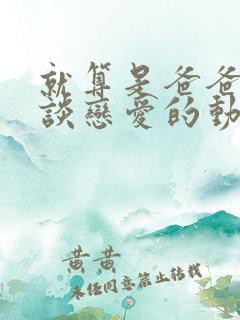 就算是爸爸
談戀愛的動
黃黃
未經同意禁止轉載